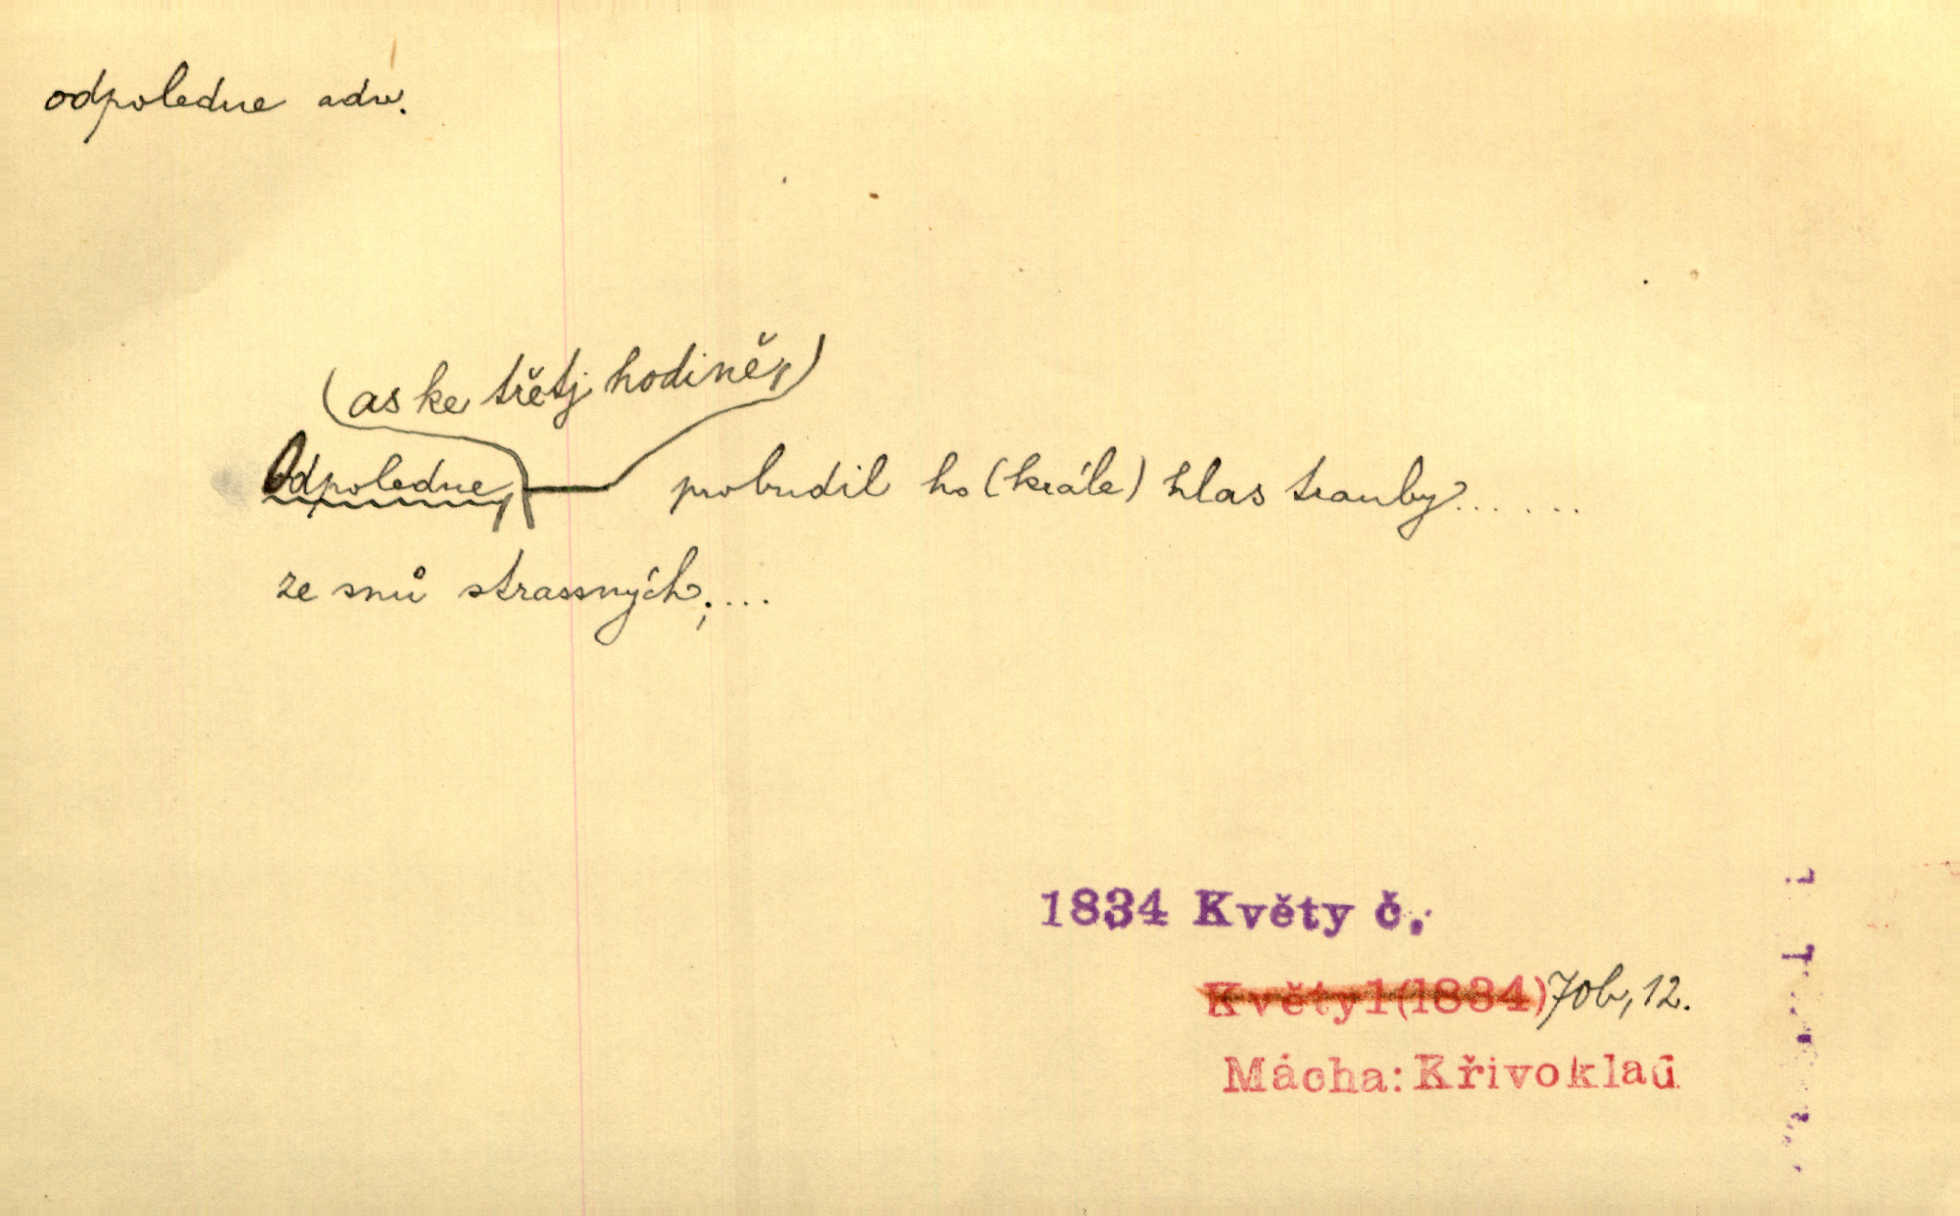 odpoledne adv.
(as ke třetj hodině,)
Odpoledne, probudil ho (krále) hlas trauby......
ze snů strassných;....
1834 Květy č.
Květy1(1834)70b,12.
Mácha:Křivoklad